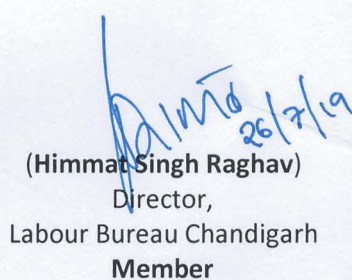 26/7/19
(Himmat Singh Raghav)
Director,
Labour Bureau Chandigarh
Member